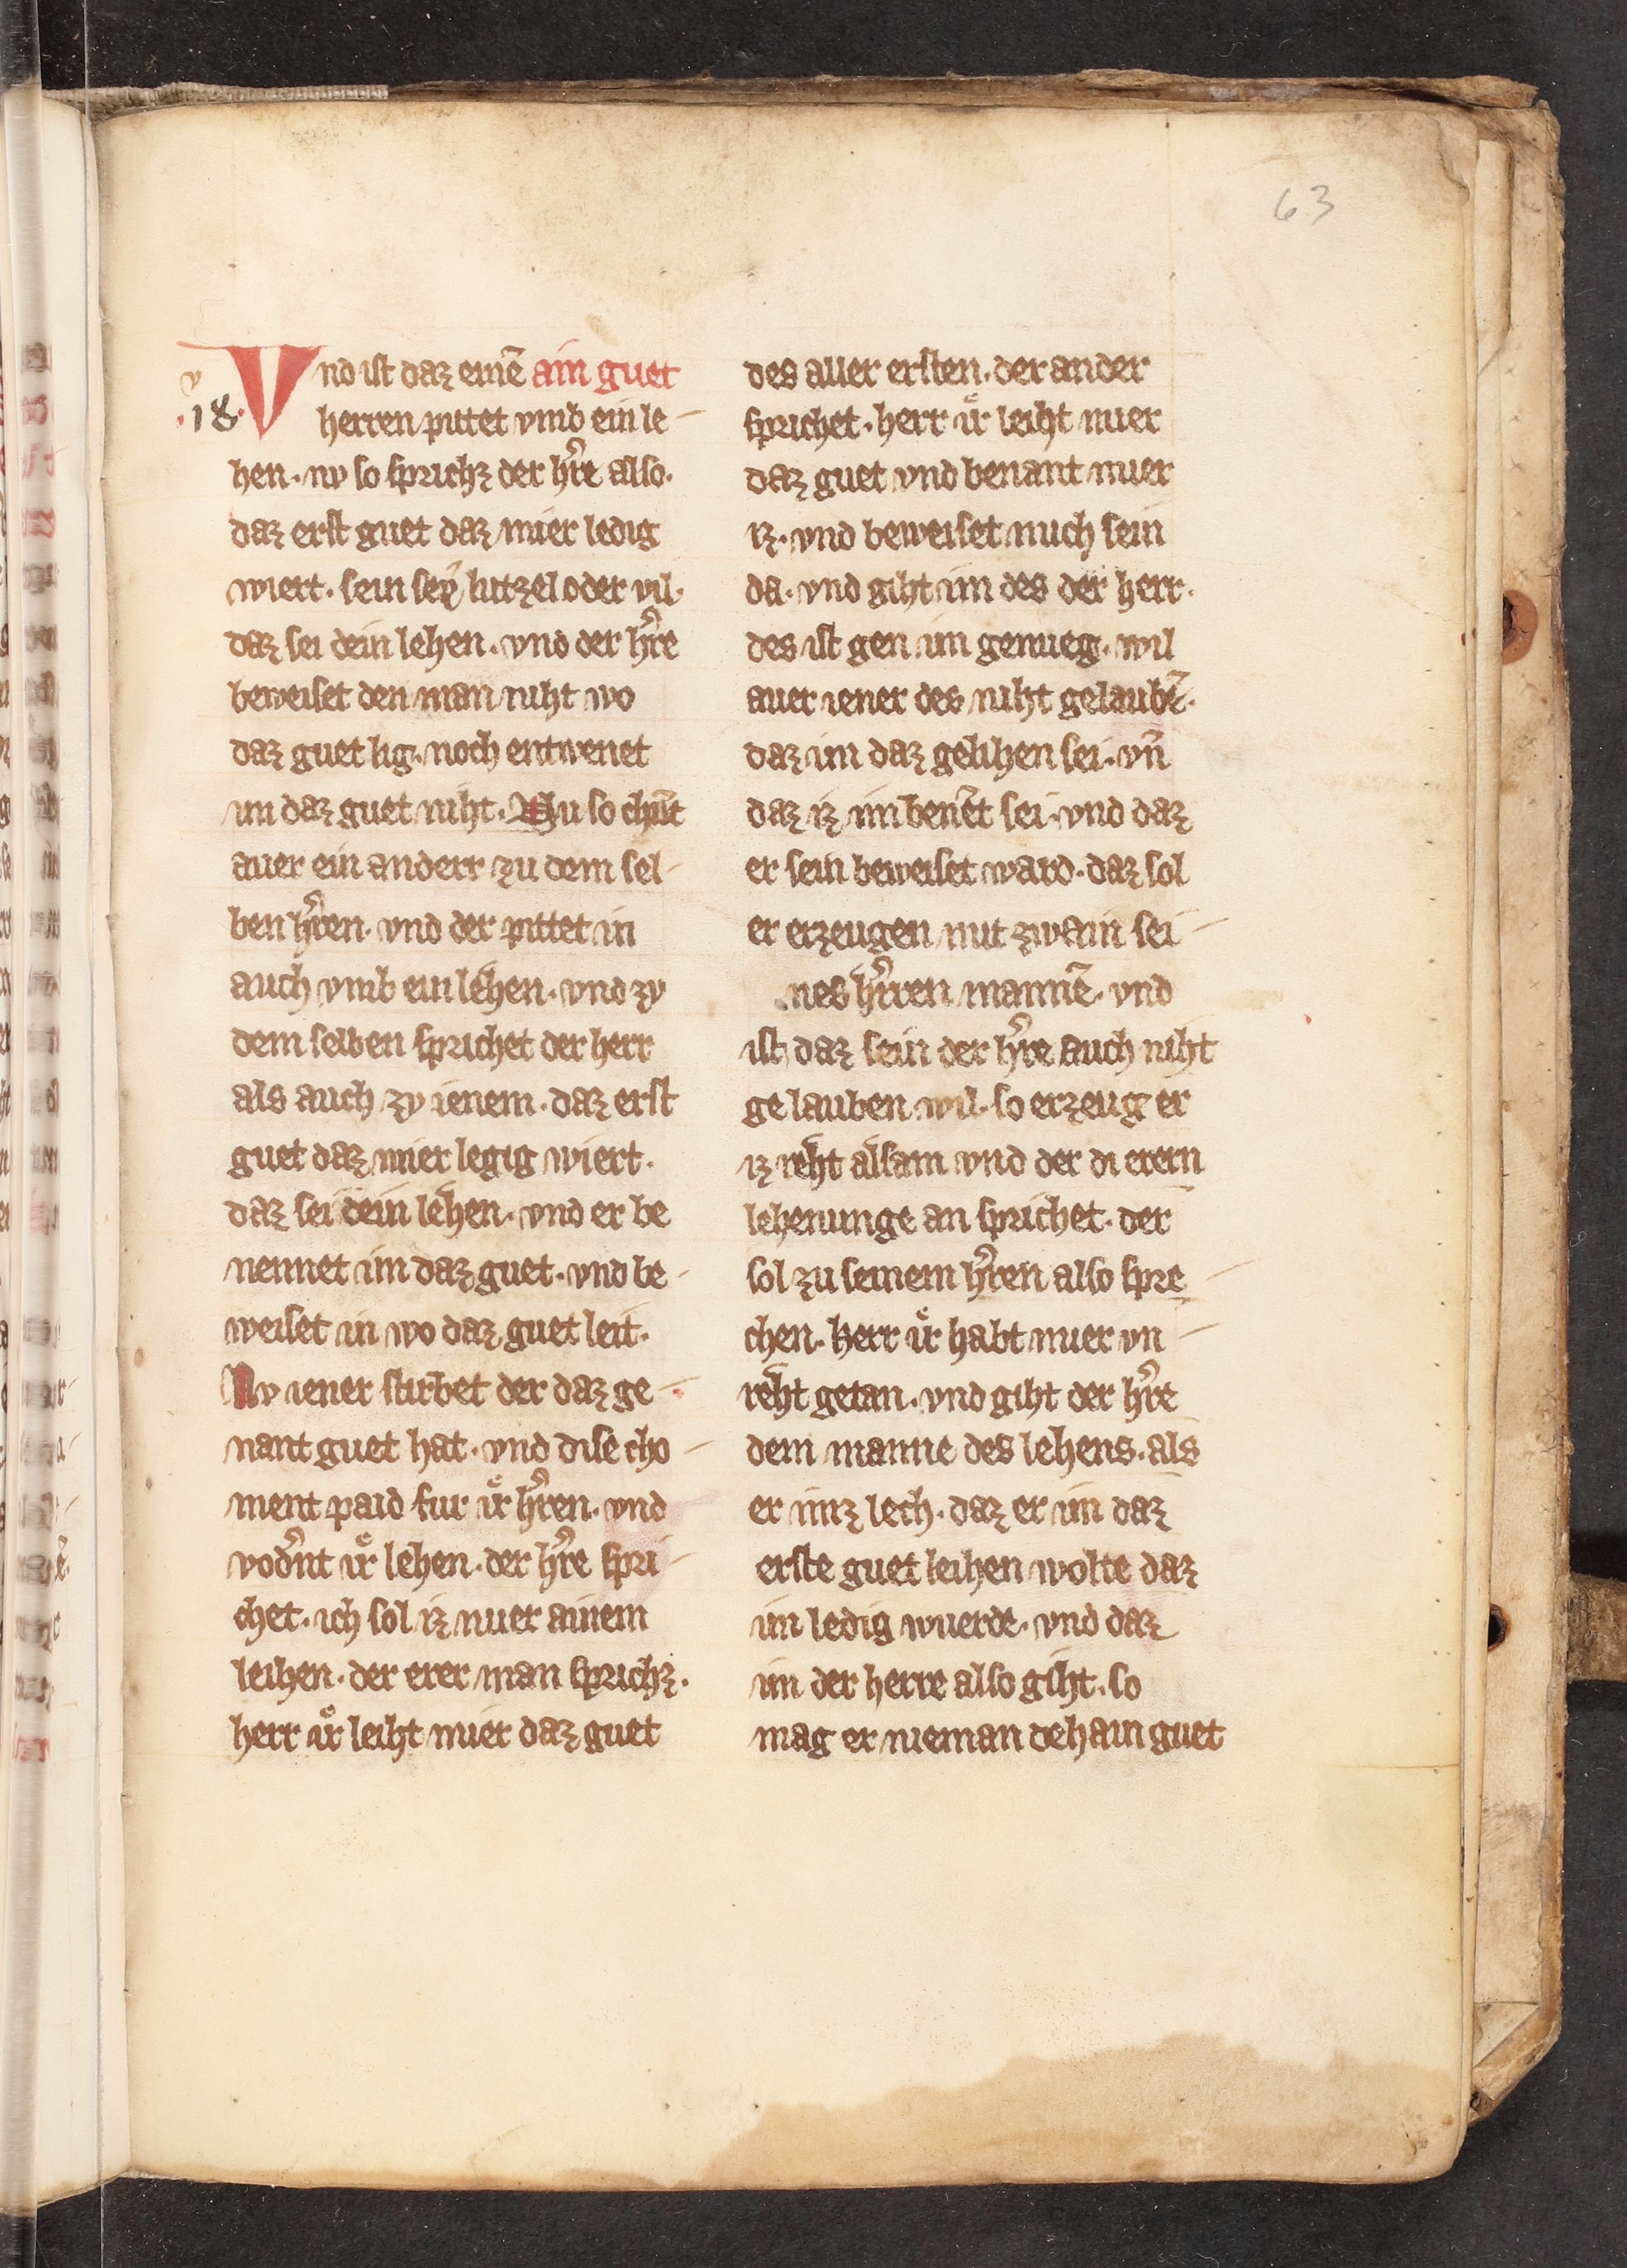 63
Vnd ist daz einē ain guet
18. herren pittet vmb ein le-
hen. nv so sprichz der hr̄e also.
daz erst guet daz mier ledig
wiert. sein seÿ lutzel oder vil.
daz sei dein lehen. vnd der hr̄e
beweiset den man niht wo
daz guet lig. noch entwenet
im daz guet niht. Nu so chūt
auer ein anderr zu dem sel-
ben hr̄en. vnd der pittet in
auch vmb ein lehen. vnd zv
dem selben sprichet der herr
als auch zv ienem. daz erst
guet daz mier legig wiert.
daz sei dein lehen. vnd er be
nennet im daz guet. vnd be-
weiset in wo daz guet leit.
Nv iener stirbet der daz ge-
nant guet hat. vnd dise cho-
ment paid fur iͤr hr̄en. vnd
vodn̄t iͤr lehen. der hr̄e spri-
chet. ich sol iz nuer ainem
leihen. der erer man sprichz.
herr iͤr leiht mier daz guet
des aller ersten. der ander
sprichet. herr iͤr leiht mier
daz guet vnd benant mier
iz. vnd beweiset mich sein
da. vnd giht im des der herr.
des ist gen im genueg. wil
auer iener des niht gelaubē.
daz im daz gelihen sei. vn̄
daz iz im benēt sei. vnd daz
er sein beweiset ward. daz sol
er erzeugen mit zwain sei-
nes hr̄ren mannē. vnd
ist daz sein der hr̄re auch niht
gelauben wil. so erzeug er
iz reht alsam vnd der di erern
lehenunge an sprichet. der
sol zu seinem hr̄en also spre-
chen. Herr iͤr habt mier vn-
reht getan. vnd giht der hr̄e
dem manne des lehens. als
er imz lech. daz er im daz
erste guet leihen wolte daz
im ledig wuerde. vnd daz
im der herre also giht. so
mag er nieman dehain guet